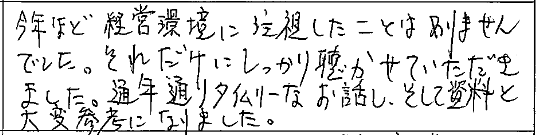 今年ほど経営環境に注視したことはありません
でした。それだけにしっかり聴かせていただき
ました。通年通りタイムリーなお話し、そして資料と
大変参考になりました。